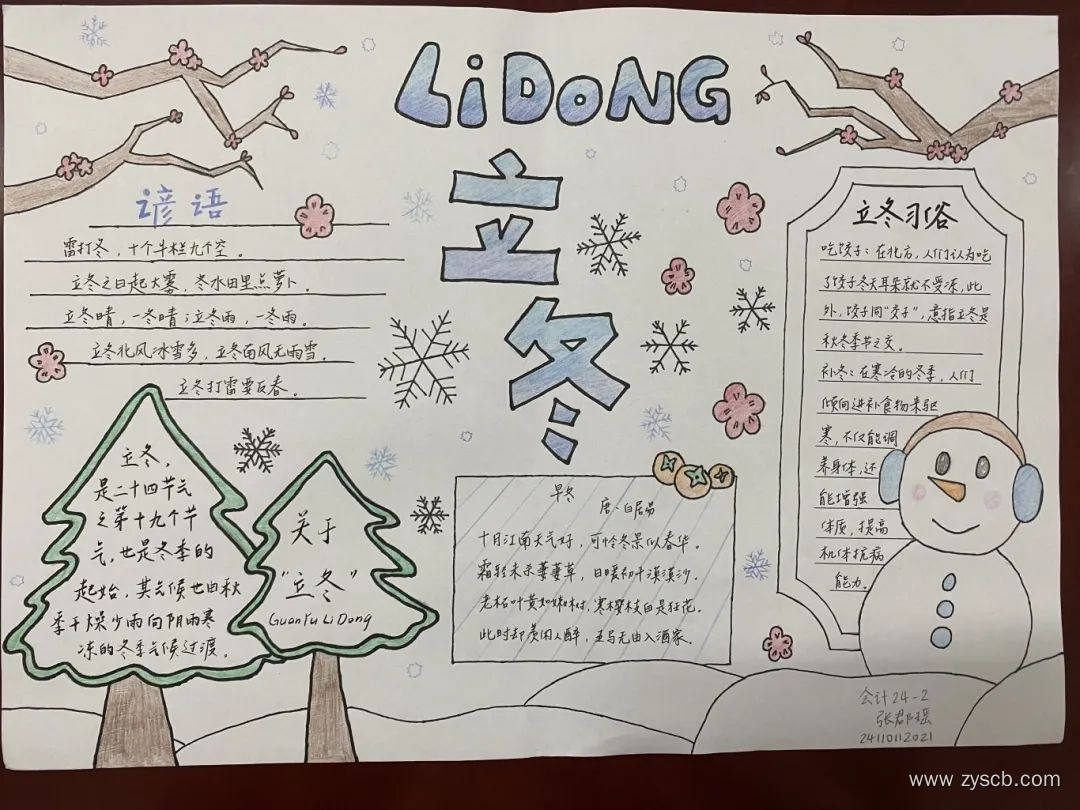 LiDONG
立冬
谚语
雷打冬，十个牛栏九个空。
立冬之日起大雾，冬水田里点萝卜。
立冬晴，一冬晴；立冬雨，一冬雨。
立冬北风冰雪多，立冬南风无雨雪。
立冬打雷要反春。
立冬，
是二十四节气
之第十九个节
气，也是冬季的
起始，其气候也由秋
季干燥少雨向阴雨寒
冻的冬季气候过渡。
关于
“立冬”
GuanYu LiDong
早冬
唐·白居易
十月江南天气好，可怜冬景似春华。
霜轻未杀萋萋草，日暖初干漠漠沙。
老柘叶黄如嫩树，寒樱枝白是狂花。
此时却羡闲人醉，五马无由入酒家。
立冬习俗
吃饺子：在北方，人们认为吃
了饺子冬天耳朵就不受冻，此
外，饺子同“交子”，意指立冬是
秋冬季节之交。
补冬：在寒冷的冬季，人们
倾向进补食物来驱
寒，不仅能调
养身体，还
能增强
体质，提高
机体抗病
能力。
会计24-2
张郡瑶
24110112021
www.zyscb.com